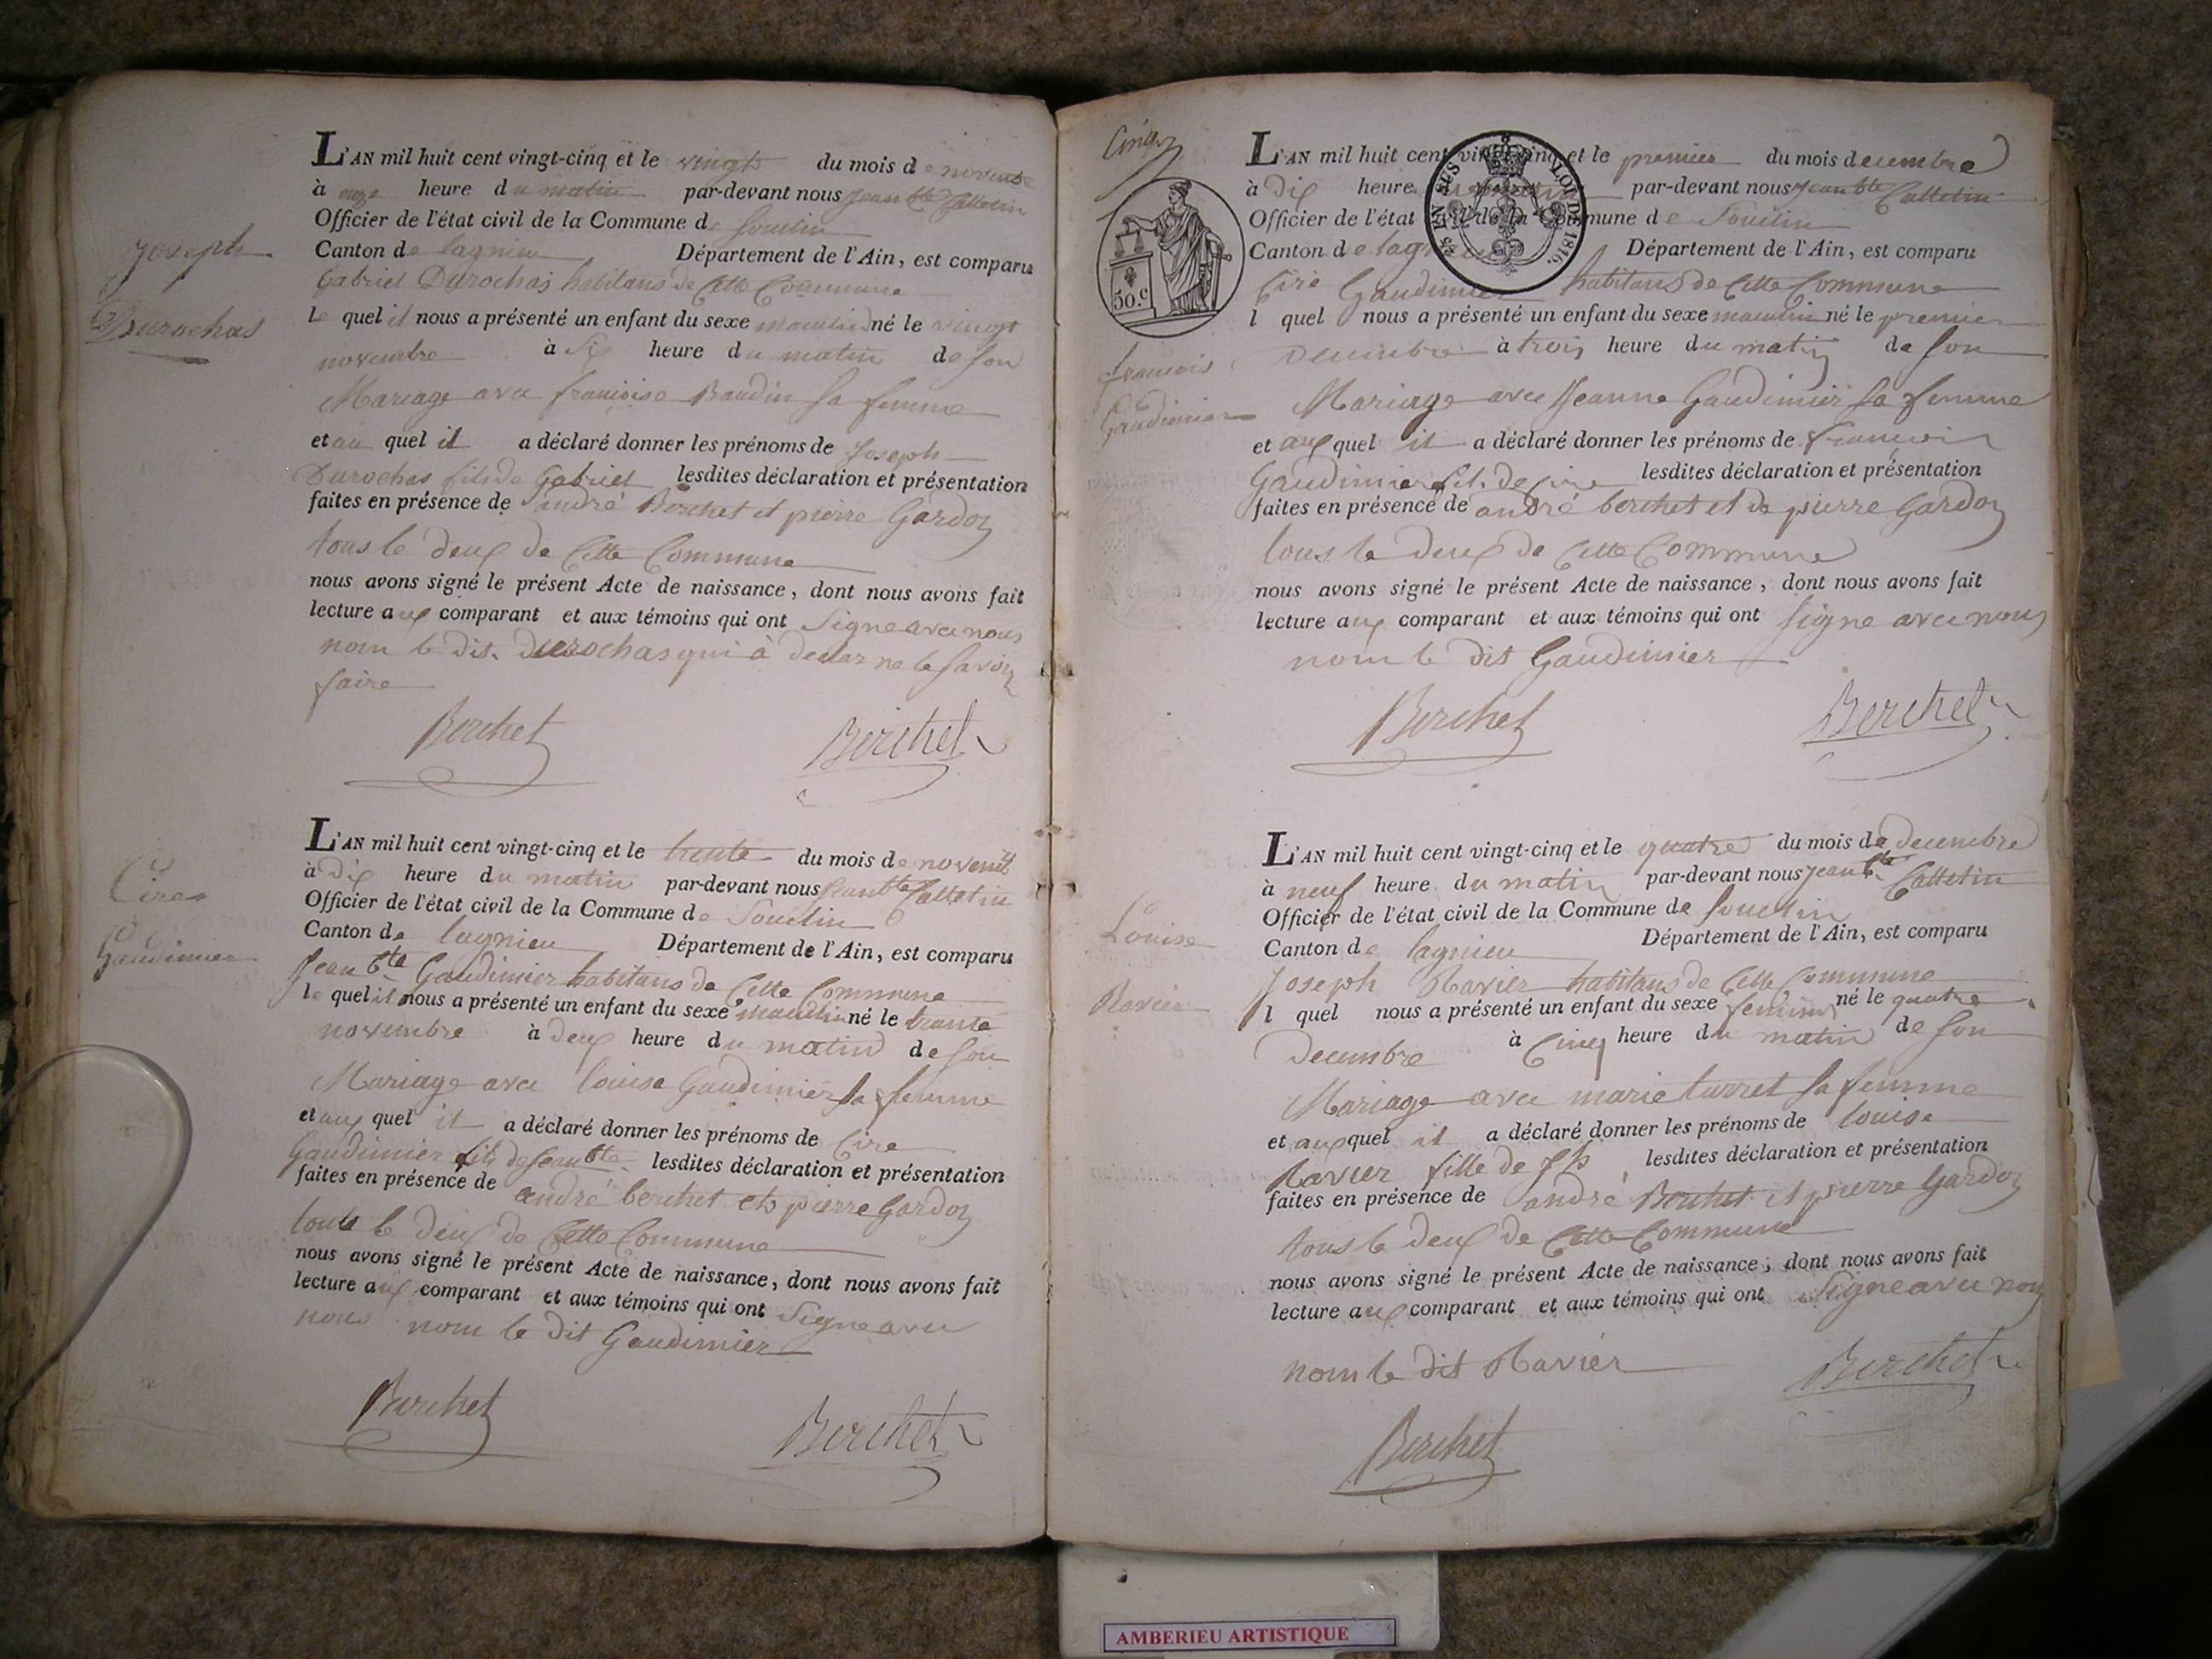 Joseph
Durochas
L'AN mil huit cent vingt-cinq et le vingt du mois de novembre
à onze heure du matin par-devant nous jean bte Cattelin
Officier de l'état civil de la Commune de Souclin
Canton de lagnieu Département de l'Ain, est comparu
Gabriel Durochas habitans de Cette Commune
le quel il nous a présenté un enfant du sexe masculin né le vingt
novembre à Six heure du matin de son
Mariage avec françoise Baudin sa femme
et au quel il a déclaré donner les prénoms de Joseph
Durochas fils de Gabriel lesdites déclaration et présentation
faites en présence de andré Berchet et pierre Gardon
tous le deux de Cette Commune
nous avons signé le présent Acte de naissance, dont nous avons fait
lecture aux comparant et aux témoins qui ont Signe avec nous
nom le dit Durochas qui à declar ne le savoir
faire
Berchet Berchet
Cire
Gaudimier
L'AN mil huit cent vingt-cinq et le trente du mois de novemb
à dix heure du matin par-devant nous jean bte Cattelin
Officier de l'état civil de la Commune de Souclin
Canton de lagnieu Département de l'Ain, est comparu
Jean bte Gaudimier habitans de Cette Commune
le quel il nous a présenté un enfant du sexe masculin né le trante
novembre à deux heure du matin de son
Mariage avec louise Gaudimier sa femme
et aux quel il a déclaré donner les prénoms de Cire
Gaudimier fils de jean bte lesdites déclaration et présentation
faites en présence de andré berchet et pierre Gardon
tous le deux de Cette Commune
nous avons signé le présent Acte de naissance, dont nous avons fait
lecture aux comparant et aux témoins qui ont Signe avec
nous nom le dit Gaudimier
Berchet Berchet
Cinq
50.c
25 EN SUS LOI DE 1816.
françois
Gaudimier
L'AN mil huit cent vingt-cinq et le premier du mois decembre
à Dix heure par-devant nous jean bte Cattelin
Officier de l'état civil de la Commune de Souclin
Canton de lagnieu Département de l'Ain, est comparu
Cire Gaudimier habitans de Cette Commune
l quel nous a présenté un enfant du sexe masculin né le premier
Decembre à trois heure du matin de son
Mariage avec Jeanne Gaudimier sa femme
et aux quel il a déclaré donner les prénoms de françois
Gaudimier fils de cire lesdites déclaration et présentation
faites en présence de andré berchet et de pierre Gardon
tous le deux de Cette Commune
nous avons signé le présent Acte de naissance, dont nous avons fait
lecture aux comparant et aux témoins qui ont signe avec nous
nom le dit Gaudimier
Berchet Berchet
Louise
Ravier
L'AN mil huit cent vingt-cinq et le quatre du mois de decembre
à neuf heure du matin par-devant nous jean bte Cattelin
Officier de l'état civil de la Commune de Souclin
Canton de lagnieu Département de l'Ain, est comparu
Joseph Ravier habitans de Cette Commune
l quel nous a présenté un enfant du sexe feminin né le quatre
Decembre à Cinq heure du matin de son
Mariage avec marie turret sa femme
et aux quel il a déclaré donner les prénoms de louise
Ravier fille de Jh lesdites déclaration et présentation
faites en présence de andré Berchet et pierre Gardon
tous le deux de Cette Commune
nous avons signé le présent Acte de naissance, dont nous avons fait
lecture aux comparant et aux témoins qui ont Signe avec nous
nom le dit Ravier
Berchet
Berchet
AMBERIEU ARTISTIQUE